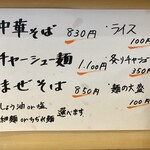 中華そば 830円
・ライス 100円
チャーシュー麺 1.100円
・炙りチャーシュー 350円
まぜそば 850円
・麺の大盛 100円
しょう油 or 塩
細麺 or ちぢれ麺
選べます